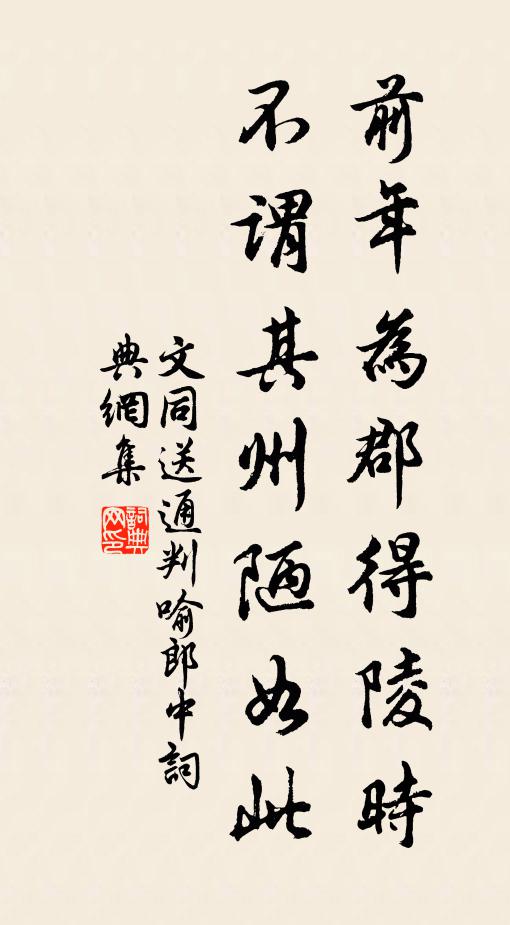 前年為郡得陵時
不謂其州陋如此
文同送通判喻郎中詞
典網集
詞典網印